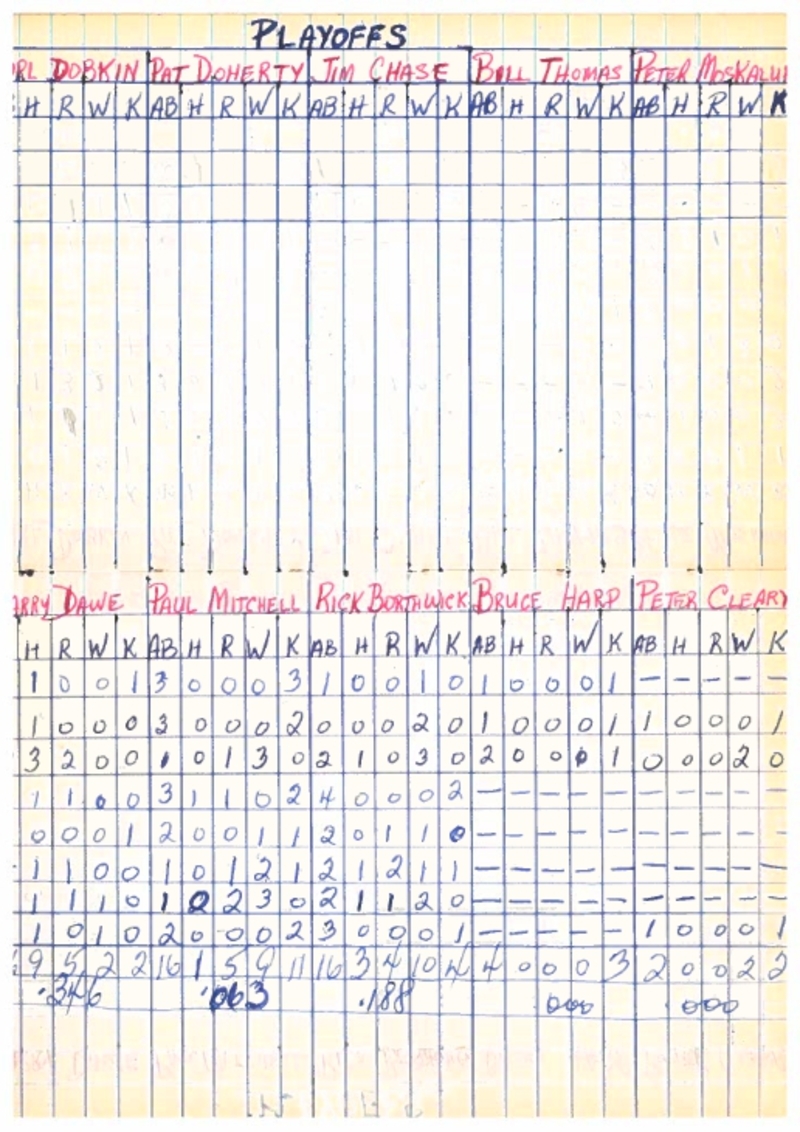 PLAYOFFS
RL DOBKIN PAT DOHERTY JIM CHASE BILL THOMAS PETER MOSKALU
H R W K AB H R W K AB H R W K AB H R W K AB H R W K
ARRY DAWE PAUL MITCHELL RICK BORTHWICK BRUCE HARP PETER CLEARY
H R W K AB H R W K AB H R W K AB H R W K AB H R W K
1 0 0 1 3 0 0 0 3 1 0 0 1 0 1 0 0 0 1 - - - - -
1 0 0 0 3 0 0 0 2 0 0 0 2 0 1 0 0 0 1 1 0 0 0 1
3 2 0 0 1 0 1 3 0 2 1 0 3 0 2 0 0 0 1 0 0 0 2 0
1 1 0 0 3 1 1 0 2 4 0 0 0 2 - - - - - - - - - -
0 0 0 1 2 0 0 1 1 2 0 1 1 0 - - - - - - - - - -
1 1 0 0 1 0 1 2 1 2 1 2 1 1 - - - - - - - - - -
1 1 1 0 1 0 2 3 0 2 1 1 2 0 - - - - - - - - - -
1 0 1 0 2 0 0 0 2 3 0 0 0 1 - - - - - 1 0 0 0 1
9 5 2 2 16 1 5 9 11 16 3 4 10 4 4 0 0 0 3 2 0 0 2 2
.346 .063 .188 000 .000